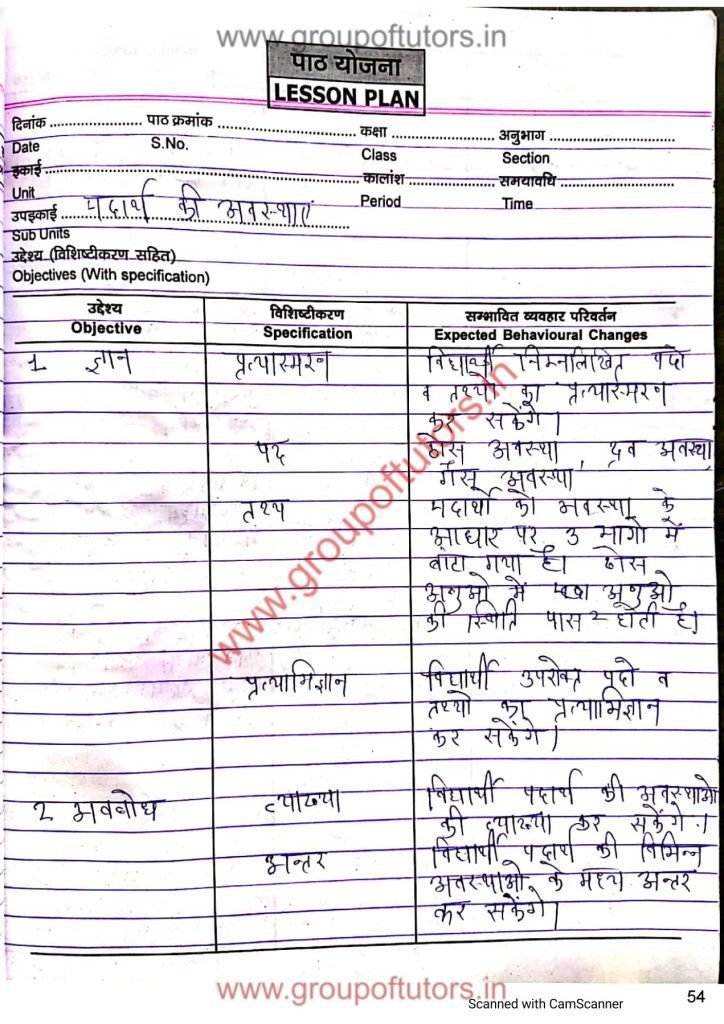 www.groupoftutors.in
पाठ योजना
LESSON PLAN
दिनांक ...................... पाठ क्रमांक ................................. कक्षा ......................... अनुभाग ................................
Date S.No. Class Section
इकाई ................................................................................ कालांश ..................... समयावधि ...........................
Unit Period Time
उपइकाई ..... पदार्थ की अवस्थाएं
Sub Units
उद्देश्य (विशिष्टीकरण सहित)
Objectives (With specification)
उद्देश्य विशिष्टीकरण सम्भावित व्यवहार परिवर्तन
Objective Specification Expected Behavioural Changes
1 ज्ञान प्रत्यास्मरन विद्यार्थी निम्नलिखित पदो
व तथ्यो का प्रत्यास्मरन
कर सकेंगे।
पद ठोस अवस्था, द्रव अवस्था,
गैस अवस्था
तथ्य पदार्थो को अवस्था के
आधार पर 3 भागो में
बाटा गया है। ठोस
अणुओ में अणुओ
की स्थिति पास २ होती है।
प्रत्याभिज्ञान विद्यार्थी उपरोक्त पदो व
तथ्यो का प्रत्याभिज्ञान
कर सकेंगे।
2 अवबोध व्याख्या विद्यार्थी पदार्थ की अवस्थाओ
की व्याख्या कर सकेंगे।
अन्तर विद्यार्थी पदार्थ की विभिन्न
अवस्थाओ के मध्य अन्तर
कर सकेंगे।
www.groupoftutors.in
www.groupoftutors.in
Scanned with CamScanner
54